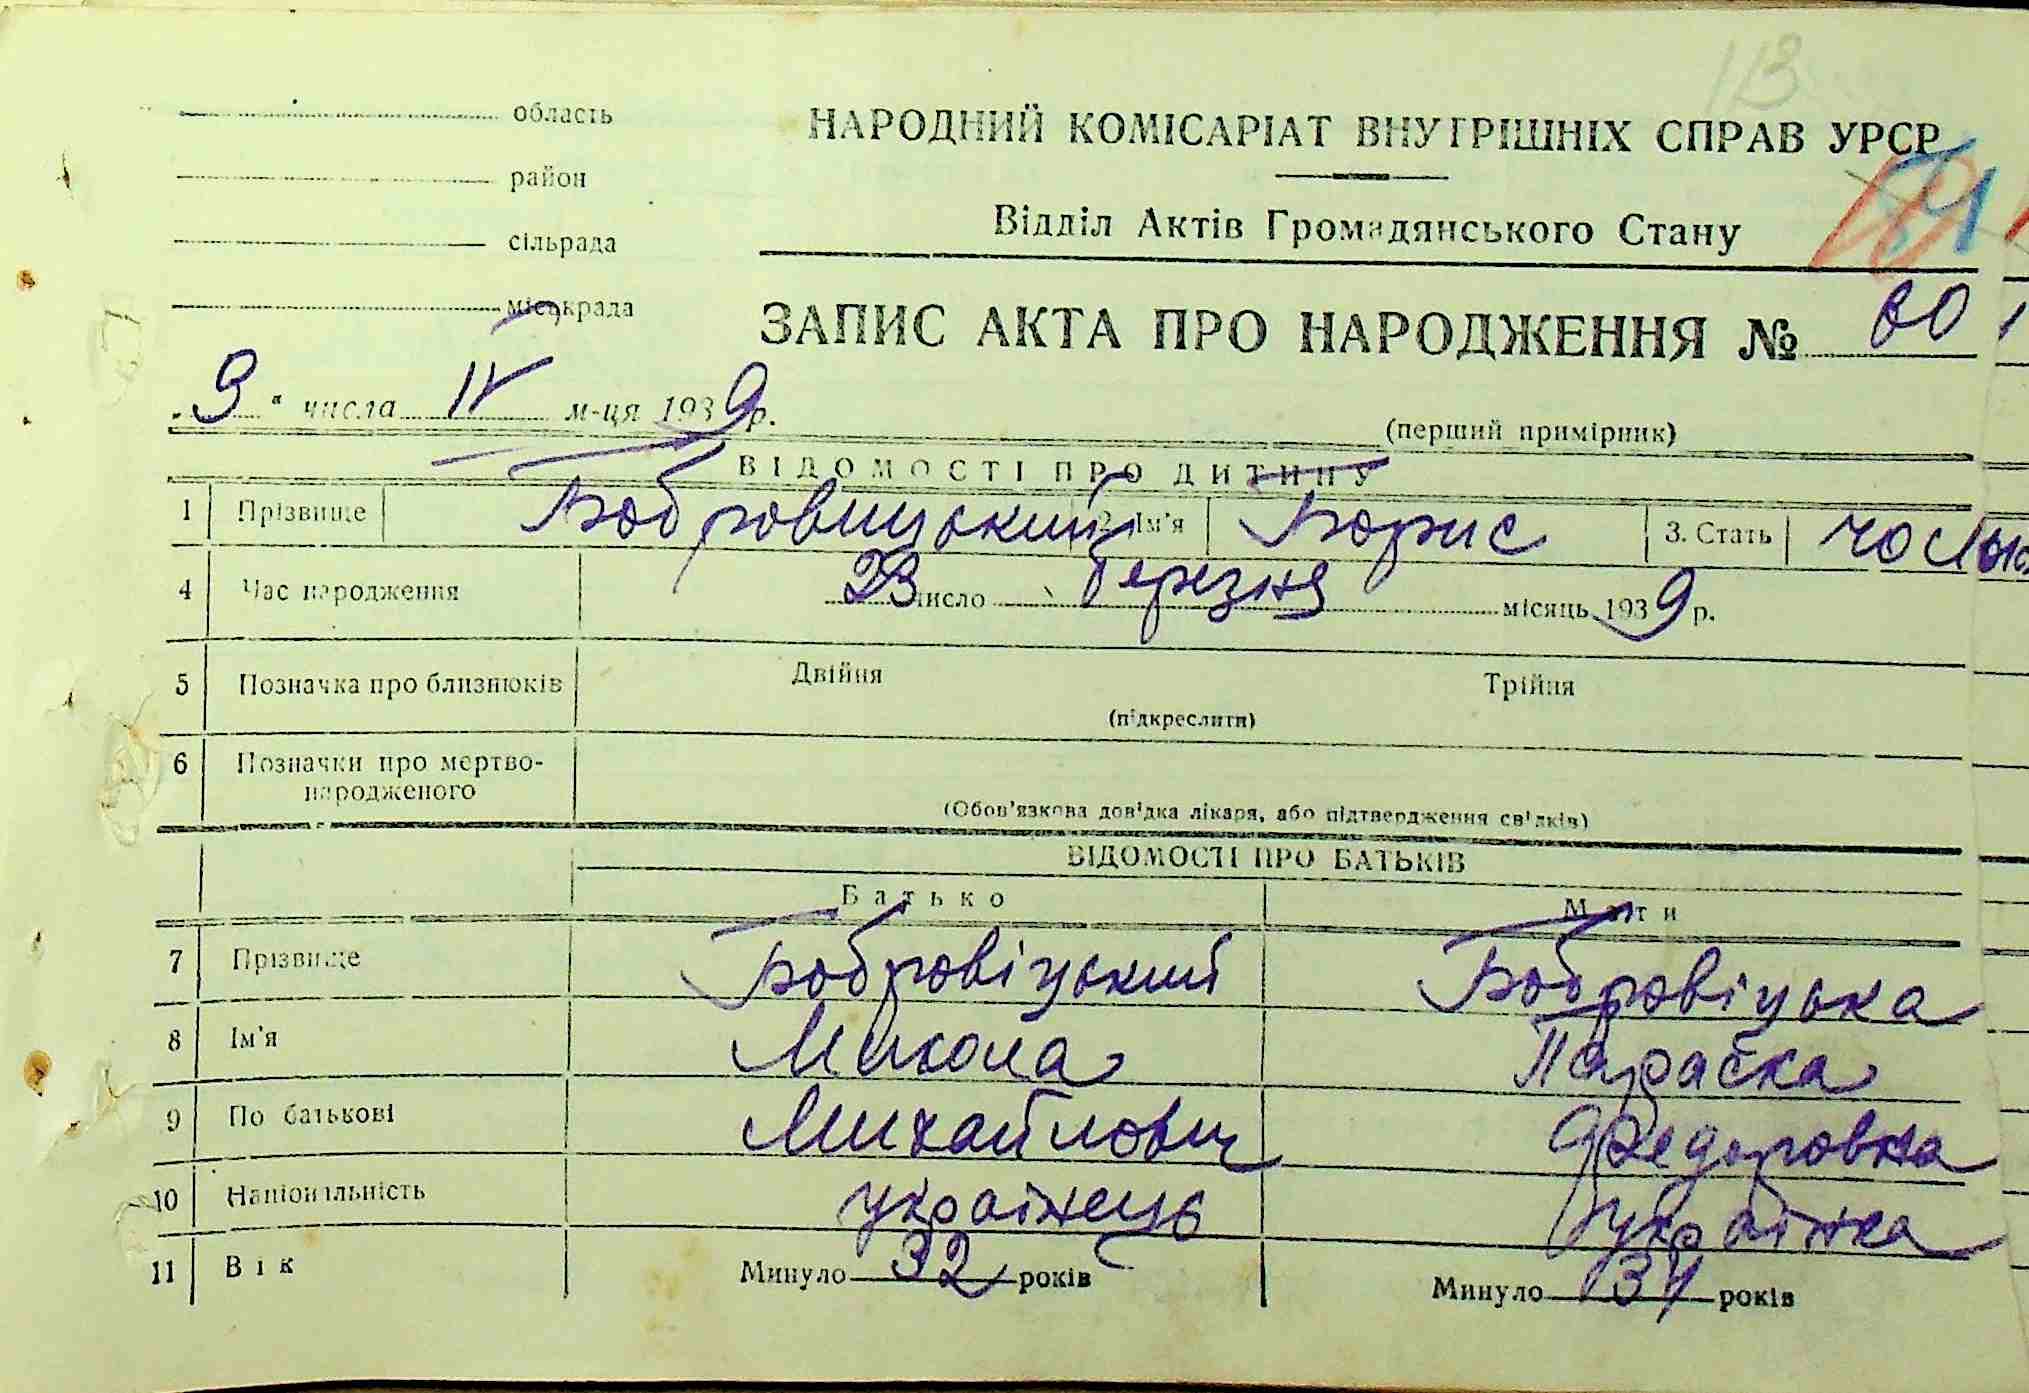 область
район
сільрада
міськрада
НАРОДНИЙ КОМІСАРІАТ ВНУТРІШНІХ СПРАВ УРСР
Відділ Актів Громадянського Стану
ЗАПИС АКТА ПРО НАРОДЖЕННЯ № 60
„9“ числа IV м-ця 1939 р.
(перший примірник)
ВІДОМОСТІ ПРО ДИТИНУ
1 Прізвище Бобровицький 2. Ім'я Борис 3. Стать
4 Час народження 23 число березня місяць 1939 р.
5 Позначка про близнюків Двійня Трійня
(підкреслити)
6 Позначки про мертво-
народженого
(Обов'язкова довідка лікаря, або підтвердження свідків)
ВІДОМОСТІ ПРО БАТЬКІВ
Батько Мати
7 Прізвище Бобровіцький Бобровіцька
8 Ім'я Микола Параска
9 По батькові Михайлович Федоровна
10 Національність українець українка
11 Вік Минуло 32 років Минуло 34 років